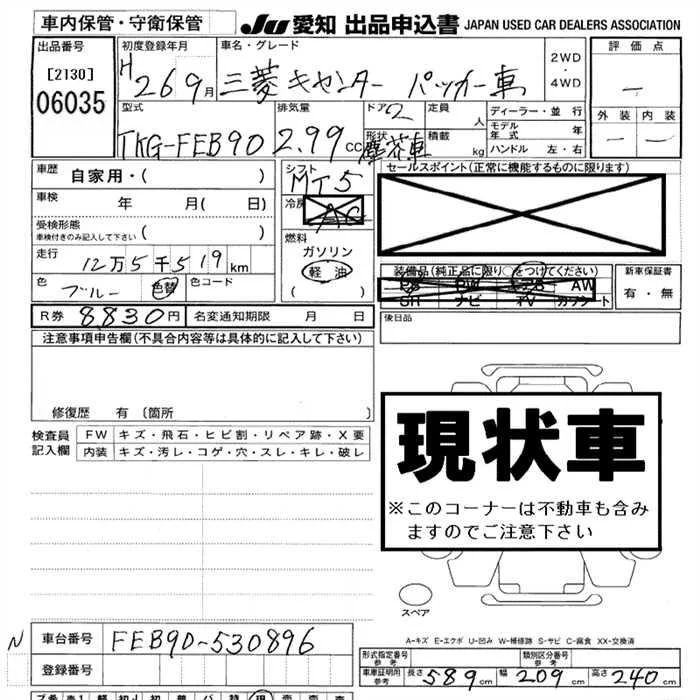 車内保管・守衛保管
JU 愛知 出品申込書 JAPAN USED CAR DEALERS ASSOCIATION
出品番号 初度登録年月 車名・グレード 評価点
[2130] H 26 9月 三菱キャンター パッカー車 2WD・4WD —
06035 外装 内装
型式 排気量 ドア 定員 ディーラー・並行
TKG-FEB90 2.99 CC 2 人 モデル年式 年 — —
形状 塵芥車 積載 kg ハンドル 左・右
車歴 自家用・( ) シフト MT5 セールスポイント(正常に機能するものに限ります)
車検 年 月( 日) 冷房 AC
受検形態 ( )
車検付きのみ記入して下さい
燃料
走行 12万5千519km ガソリン
軽油 装備品(純正品に限り○をつけてください) 新車保証書
色 ブルー 色替 色コード ( ) PS PW エアB AW 有・無
SR ナビ TV カワシート
R券 8830円 名変通知期限 月 日 後日品
注意事項申告欄(不具合内容等は具体的に記入して下さい)
修復歴 有〔箇所 〕
現状車
※このコーナーは不動車も含み
ますのでご注意下さい
検査員 FW キズ・飛石・ヒビ割・リペア跡・X要
記入欄 内装 キズ・汚レ・コゲ・穴・スレ・キレ・破レ
スペア
A-キズ E-エクボ U-凹み W-補修跡 S-サビ C-腐食 XX-交換済
N 車台番号 FEB90-530896
登録番号
形式指定番号 参考 類別区分番号 参考
車庫証明用 参考 長さ 589cm 幅 209cm 高さ 240cm